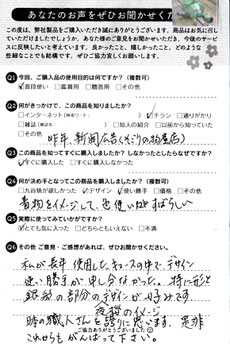 あなたのお声をぜひお聞かせくだ
この度は、弊社製品をご購入いただき誠にありがとうございます。商品はお気に召し
ていただけましたでしょうか。あなた様のご意見をお聞かせいただき、今後のサービ
スに反映したいと考えています。良かったこと、嬉しかったこと、どのような
些細なことでも結構です。ぜひ、ご協力宜しくお願いします。
Q1 今回、ご購入品の使用目的は何ですか？（複数可）
普段使い □鑑賞用 □贈答用 □その他
Q2 何がきっかけで、この商品を知りましたか？
□インターネット チラシ □通りがかり
□雑誌 □知人の紹介 □以前から知っていた
□その他
昨年、新聞広告
Q3 この商品を知ってすぐに購入しましたか？しなかったとしたらなぜですか？
すぐに購入した □すぐに購入しなかった
Q4 何が決め手となってこの商品を購入しましたか？（複数可）
□九谷焼が欲しかった デザイン 使い勝手 □価格 □その他
着物をイメージして、色使いがすばらしい
Q5 実際に使ってみていかがですか？
とても気に入った □どちらともいえない □不満
Q6 その他ご意見・ご感想があれば、ぜひお聞かせください。
私が長年使用した の中で、デザイン
使い勝手が申し分なかった。特に形と
銀彩の部分のデザインが好みです。
夜桜のイメージ
職人さんを誇りに思います。是非
ご協力ありがとうございました
これからもがんばって下さい。